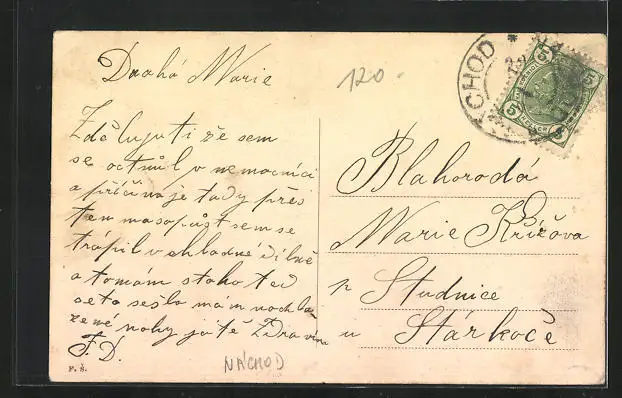 Drahá Marie
Zděluju ti že sem
se octnul v nemocnici
a příčina je tady přes
ten masopust sem se
trápil v chladné dílně
a to mám s toho teď
se to sešlo mám nachla
zené nohy já tě Zdravím
F. D.
F. S.
NÁCHOD
120.
NÁCHOD
5
5
5
Blahorodá
Marie Křížova
p Studnice
u Stárkoče